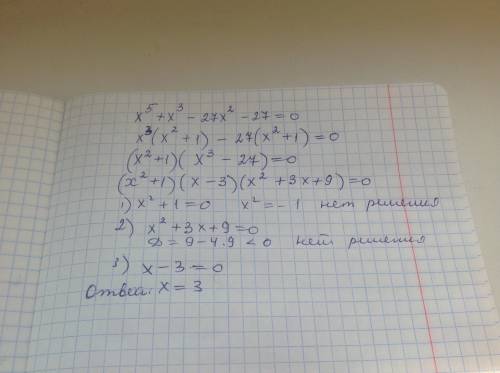 x⁵ + x³ - 27x² - 27 = 0
x³(x² + 1) - 27(x² + 1) = 0
(x² + 1)(x³ - 27) = 0
(x² + 1)(x - 3)(x² + 3x + 9) = 0
1) x² + 1 = 0 x² = - 1 нет решения
2) x² + 3x + 9 = 0
D = 9 - 4·9 < 0 нет решения
3) x - 3 = 0
Ответ: x = 3